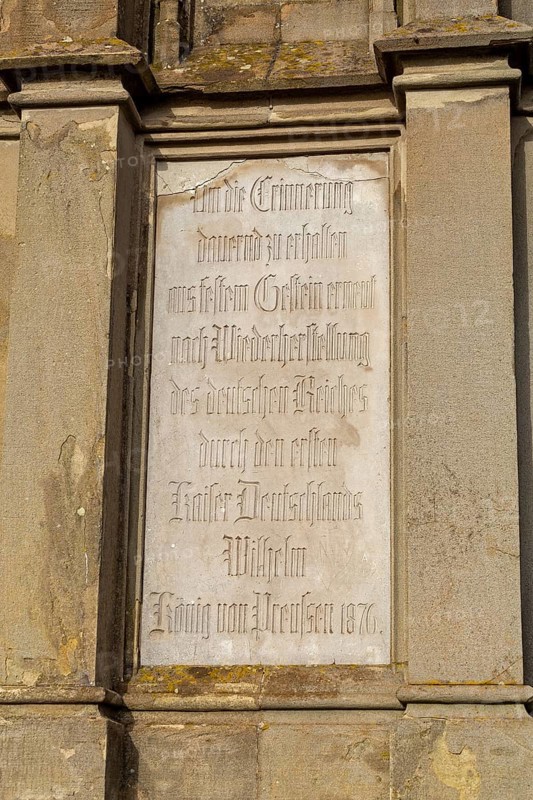 Um die Erinnerung
dauernd zu erhalten
aus festem Gestein erneut
nach Wiederherstellung
des deutschen Reiches
durch den ersten
Kaiser Deutschlands
Wilhelm
König von Preussen 1876.